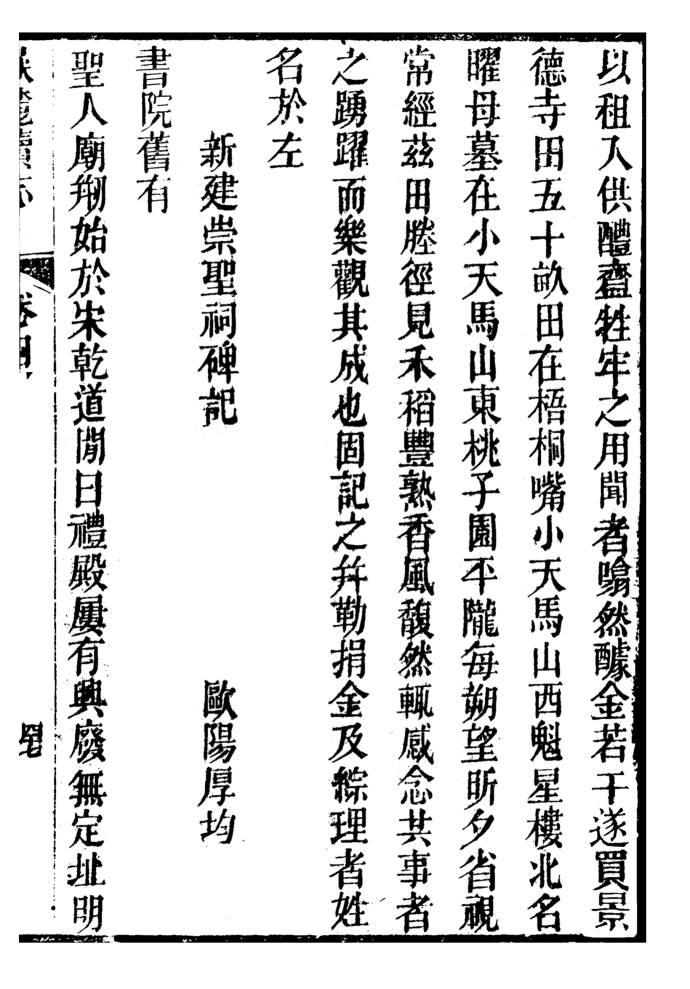 以租入供醴齍牲牢之用聞者嗡然醵金若干遂買景
德寺田五十畝田在梧桐嘴小天馬山西魁星樓北名
曜母墓在小天馬山東桃子園平隴每朔望昕夕省視
常經茲田塍徑見禾稻豐熟香風馥然輒感念共事者
之踴躍而樂觀其成也固記之并勒捐金及綜理者姓
名於左
新建崇聖祠碑記 歐陽厚均
書院舊有
聖人廟剏始於宋乾道閒曰禮殿屢有興廢無定址明
卷四